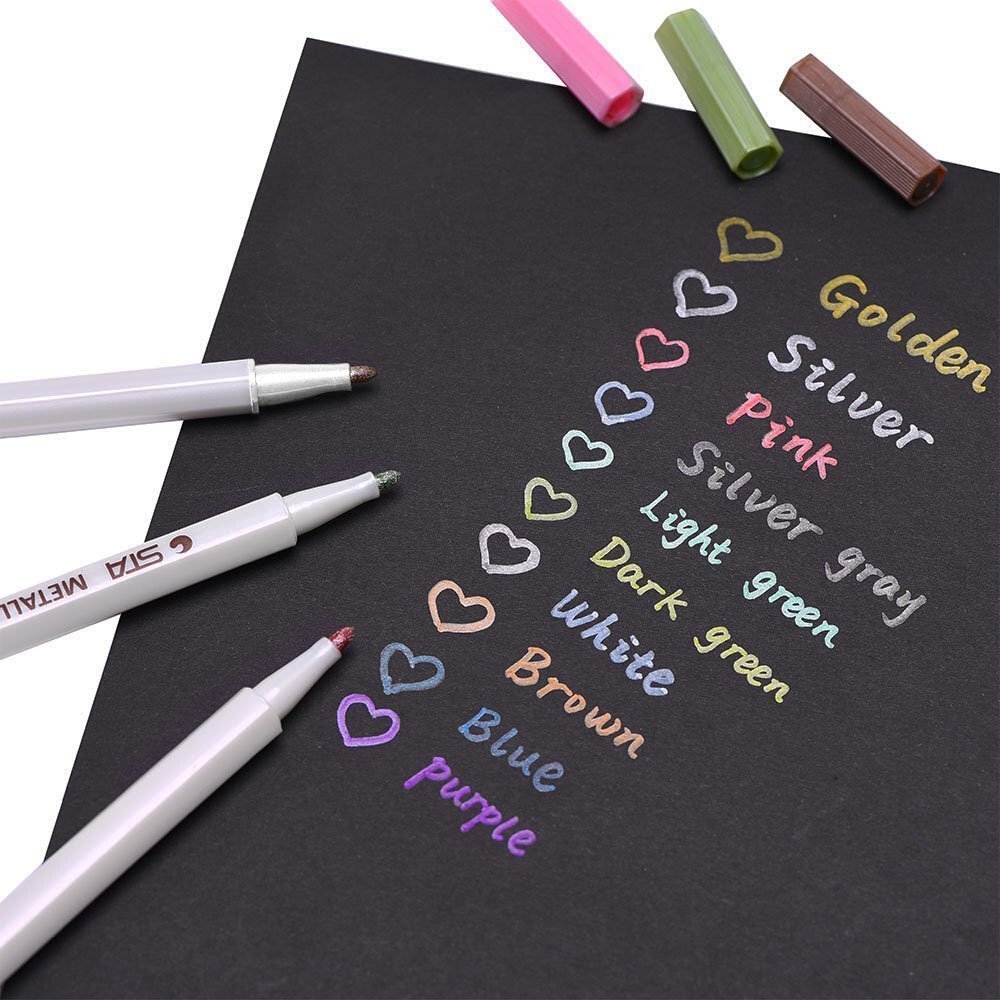 Golden
Silver
Pink
Silver gray
Light green
Dark green
White
Brown
Blue
purple
STA METALL